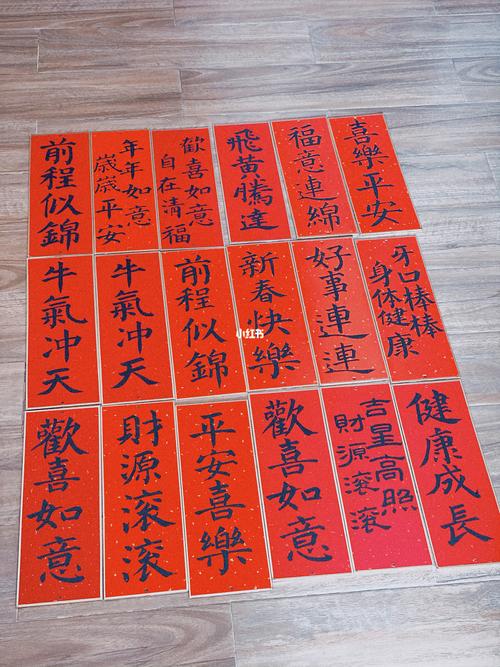 前程似錦
年年如意
歲歲平安
歡喜如意
自在清福
飛黃騰達
福意連綿
喜樂平安
牛氣冲天
牛氣冲天
前程似錦
新春快樂
好事連連
牙口棒棒
身体健康
歡喜如意
財源滚滚
平安喜樂
歡喜如意
吉星高照
財源滚滚
健康成長
小红书